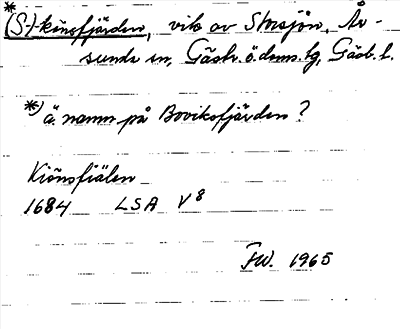 *(S:)-kinsfjärden, vik av Storsjön, År-
sunda sn, Gästr. ö. doms. hg, Gävb. l.
*) ä. namn på Boviksfjärden?
Kiönsfiälen
1684 LSA V8
FW. 1965